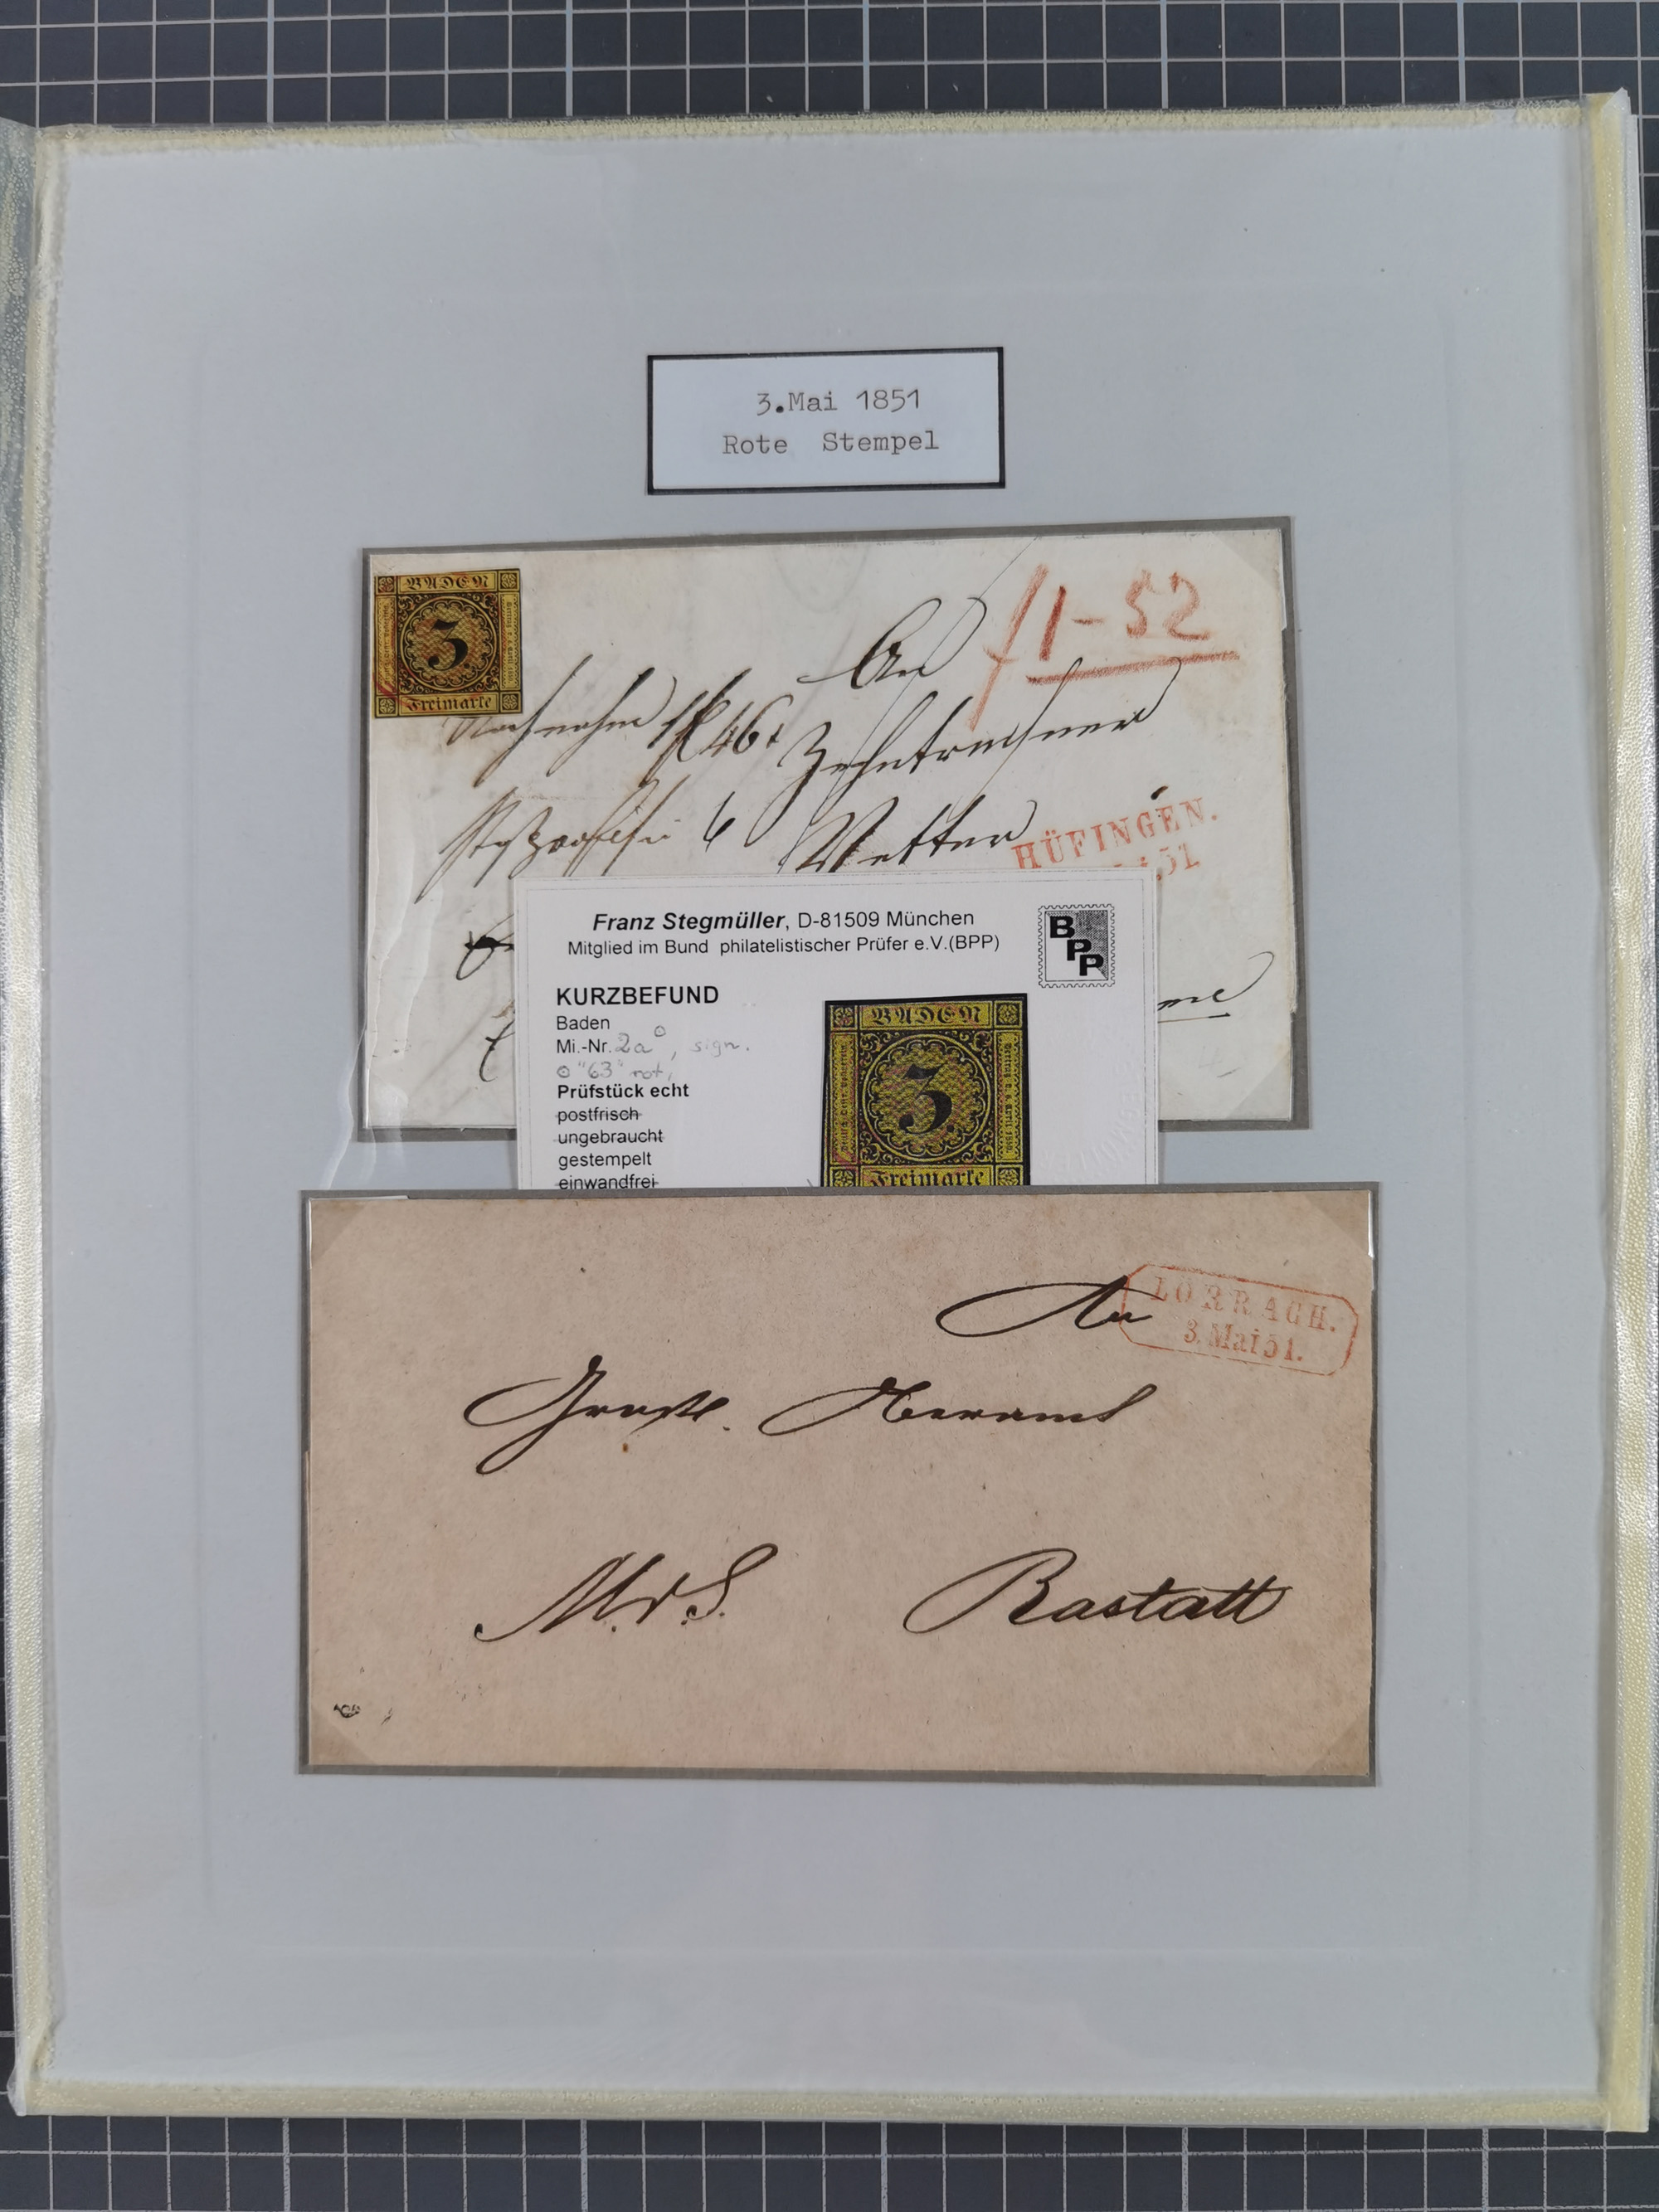 3.Mai 1851
Rote Stempel
BADEN
3
Freimarke
1-52
An
Nachnahme 1f 46x
Zehntrechner
Vetter
6
HÜFINGEN.
51
Franz Stegmüller, D-81509 München
Mitglied im Bund philatelistischer Prüfer e.V.(BPP)
BPP
KURZBEFUND
Baden
Mi.-Nr. 2a, sign.
"63" rot,
Prüfstück echt
postfrisch
ungebraucht
gestempelt
einwandfrei
BADEN
3
Freimarke
An
LÖRRACH.
3. Mai 51.
Grosh. Oberamt
M.r.S.
Rastatt